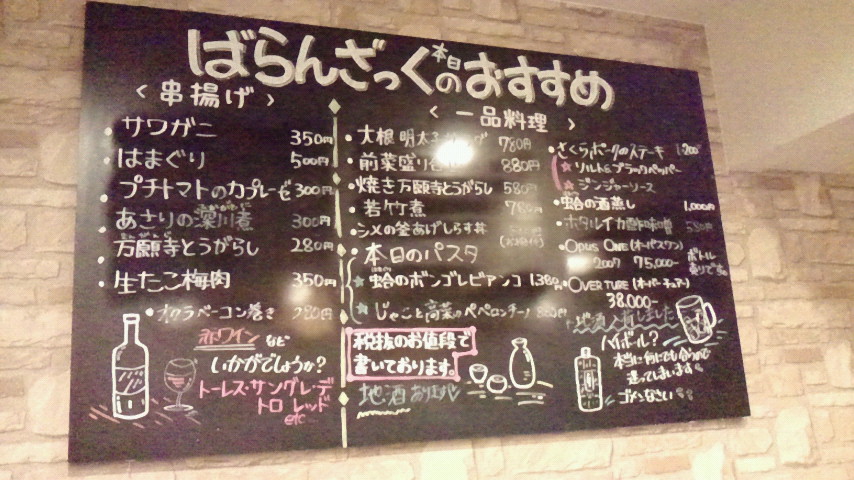 ばらんざっく本日のおすすめ
〈串揚げ〉
・サワガニ 350円
・はまぐり 500円
・プチトマトのカプレーゼ 300円
・あさりの深川煮 300円
・万願寺とうがらし 280円
・生たこ梅肉 350円
・オクラベーコン巻き 280円
赤ワインなど
いかがでしょうか?
トーレス・サングレ・デ
トロ レッド
etc
〈一品料理〉
・大根 明太 780円
・前菜盛り 880円
・焼き万願寺とうがらし 580円
・若竹煮 780円
・シメの釜あげしらす丼
・本日のパスタ
☆蛤のボンゴレビアンコ 1,380円
☆じゃこと高菜のペペロンチーノ 880円
税抜のお値段で
書いております。
地酒あります
・さくらポークのステーキ 1,200
☆ソルト&ブラックペッパー
☆ジンジャーソース
・蛤の酒蒸し 1,000円
・ホタルイカ酢味噌 580円
・OPUS ONE(オーパスワン)
2007 75,000-
・OVERTURE(オーバーチュア)
38,000-
ボトル
売りです。
ハイボール?
本当に何にでも合うので
迷ってしまいます。
ゴメンなさい